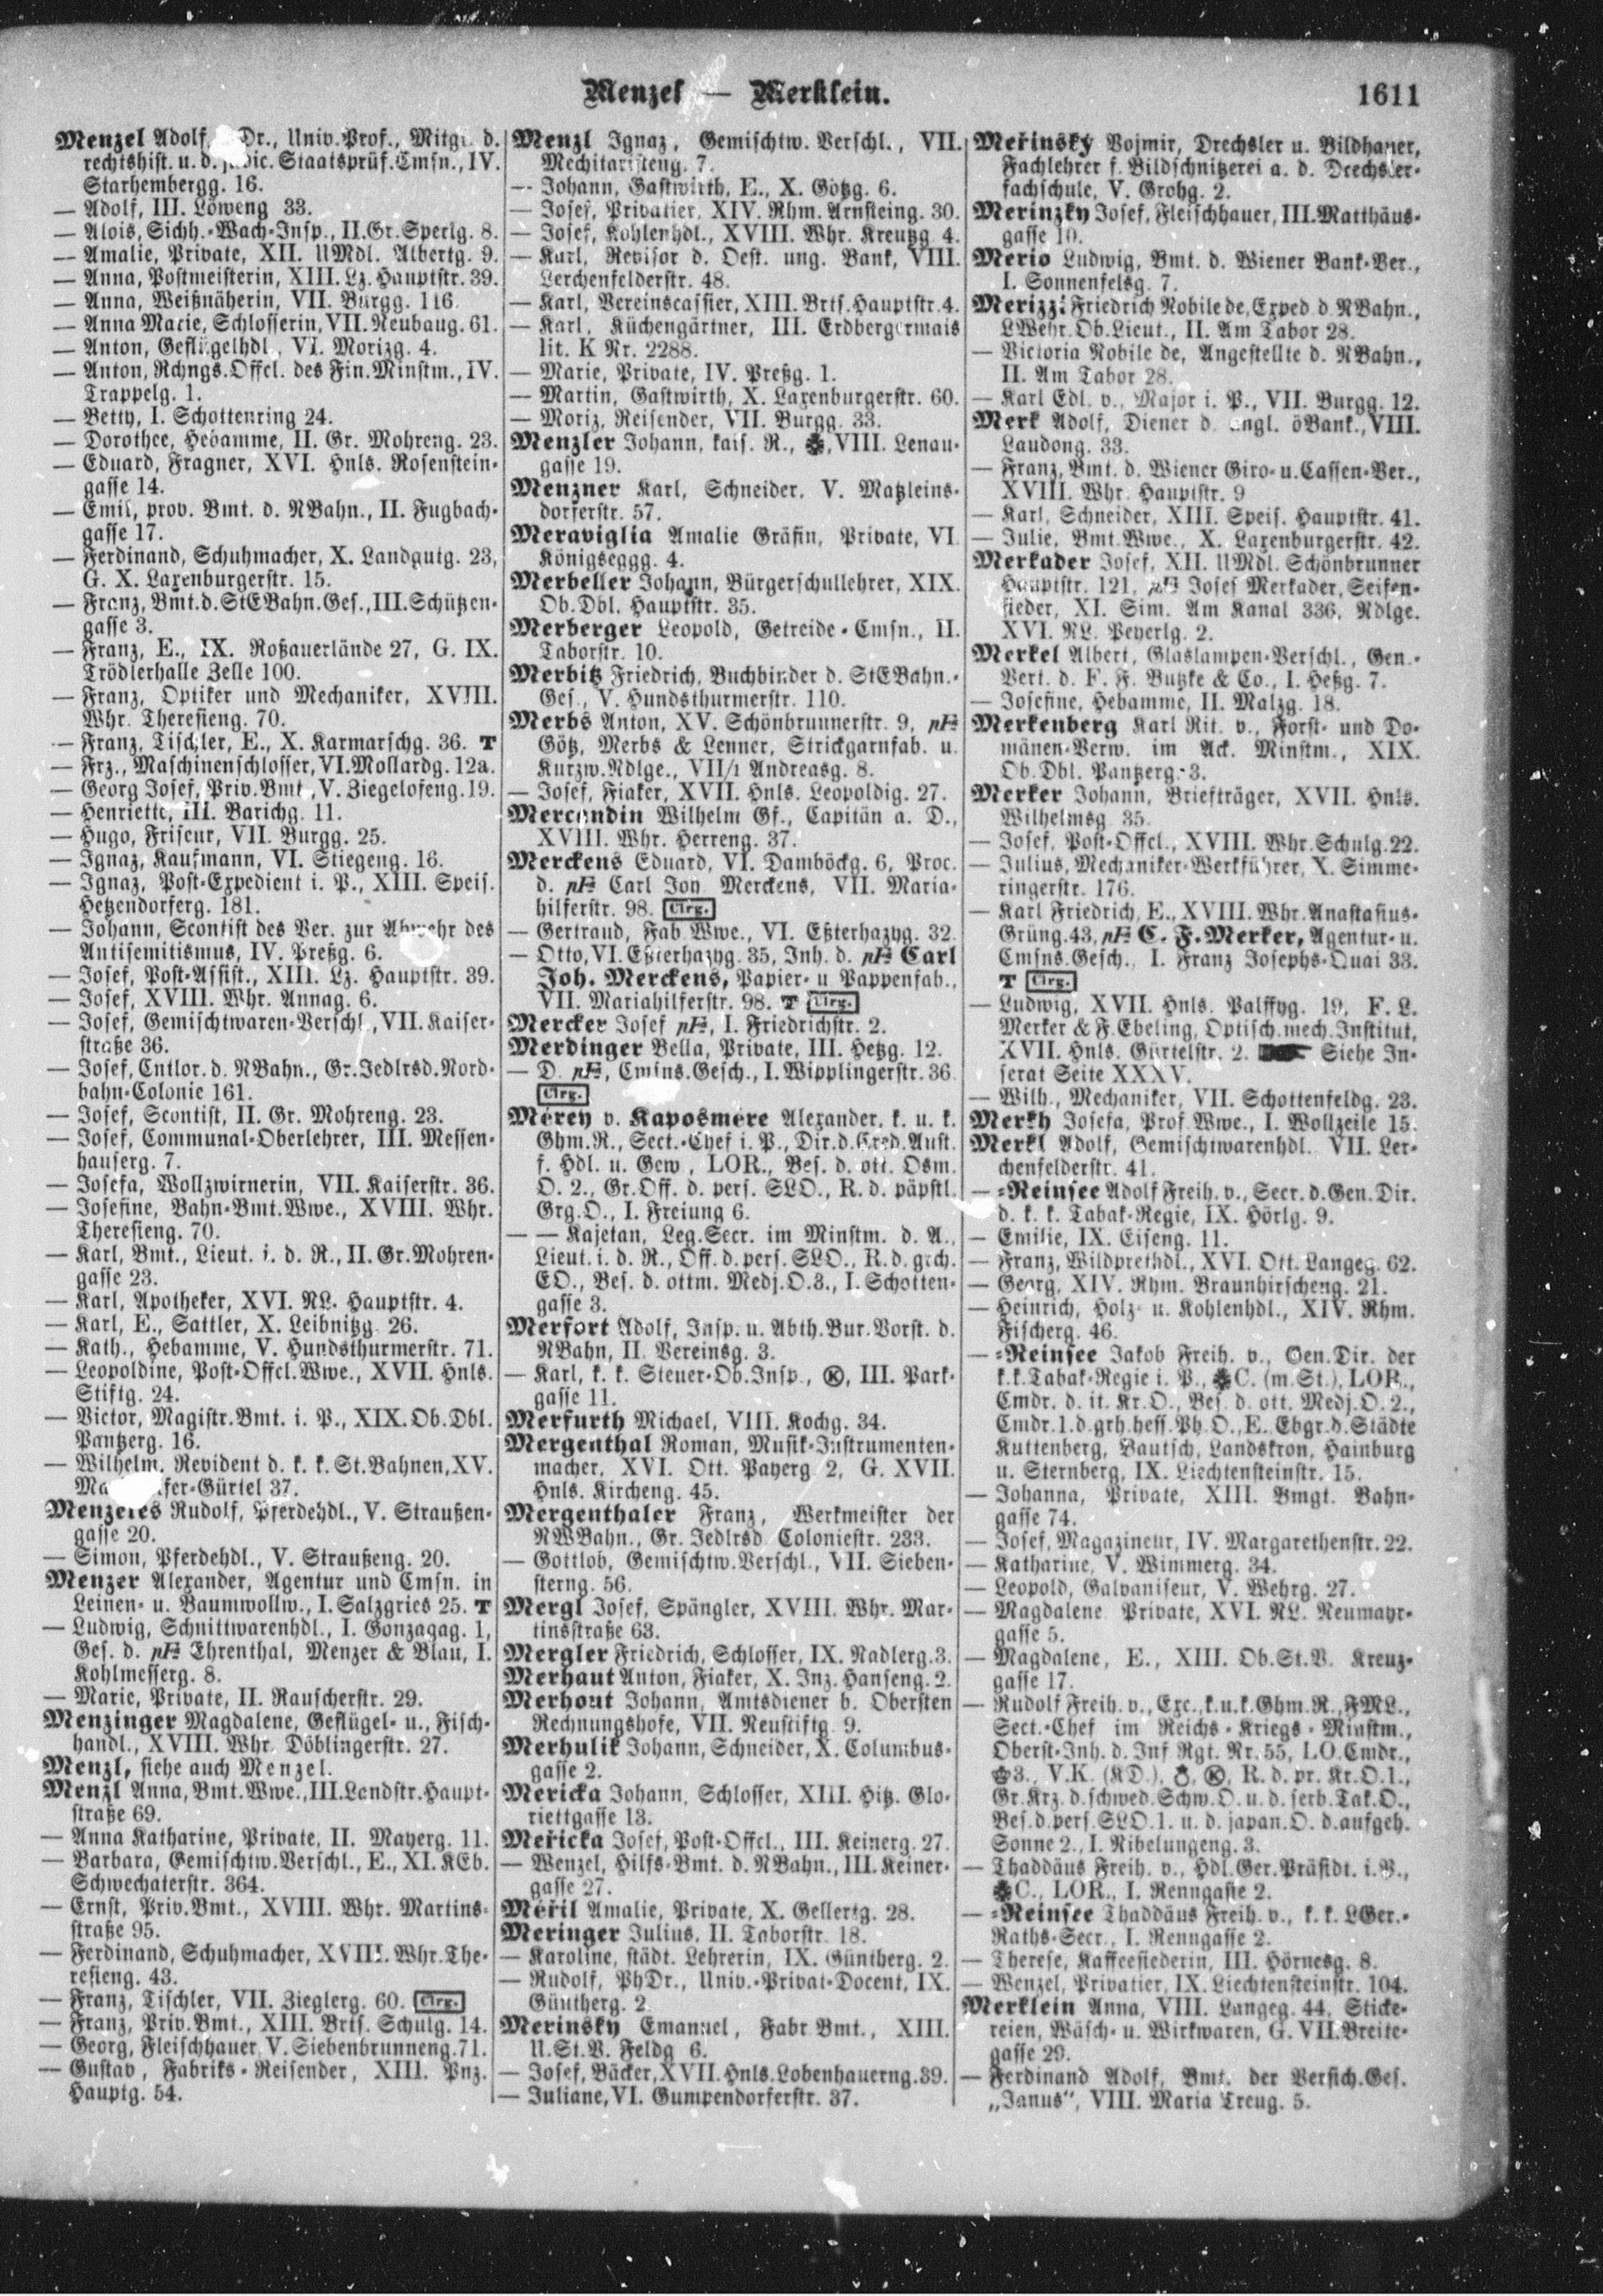 Menzel — Merklein.
1611
Menzel Adolf, Dr., Univ.Prof., Mitgl. d.
rechtshist. u. d. judic. Staatsprüf.Cmsn., IV.
Starhembergg. 16.
— Adolf, III. Löweng 33.
— Alois, Sichh.-Wach-Insp., II.Gr.Sperlg. 8.
— Amalie, Private, XII. UMdl. Albertg. 9.
— Anna, Postmeisterin, XIII. Lz. Hauptstr. 39.
— Anna, Weißnäherin, VII. Burgg. 116.
— Anna Marie, Schlosserin, VII. Neubaug. 61.
— Anton, Geflügelhdl., VI. Morizg. 4.
— Anton, Rchngs.Offcl. des Fin.Minstm., IV.
Trappelg. 1.
— Betty, I. Schottenring 24.
— Dorothee, Hebamme, II. Gr. Mohreng. 23.
— Eduard, Fragner, XVI. Hnls. Rosenstein-
gasse 14.
— Emil, prov. Bmt. d. NBahn., II. Fugbach-
gasse 17.
— Ferdinand, Schuhmacher, X. Landgutg. 23,
G. X. Laxenburgerstr. 15.
— Franz, Bmt.d.StEBahn.Ges., III.Schützen-
gasse 3.
— Franz, E., IX. Roßauerlände 27, G. IX.
Trödlerhalle Zelle 100.
— Franz, Optiker und Mechaniker, XVIII.
Whr. Theresieng. 70.
— Franz, Tischler, E., X. Karmarschg. 36. T
— Frz., Maschinenschlosser, VI.Mollardg. 12a.
— Georg Josef, Priv.Bmt., V. Ziegelofeng.19.
— Henriette, III. Barichg. 11.
— Hugo, Friseur, VII. Burgg. 25.
— Ignaz, Kaufmann, VI. Stiegeng. 16.
— Ignaz, Post-Expedient i. P., XIII. Speis.
Hetzendorferg. 181.
— Johann, Scontist des Ver. zur Abwehr des
Antisemitismus, IV. Preßg. 6.
— Josef, Post-Assist., XIII. Lz. Hauptstr. 39.
— Josef, XVIII. Whr. Annag. 6.
— Josef, Gemischtwaren-Verschl., VII. Kaiser-
straße 36.
— Josef, Cntlor. d. NBahn., Gr.Jedlrsd.Nord-
bahn-Colonie 161.
— Josef, Scontist, II. Gr. Mohreng. 23.
— Josef, Communal-Oberlehrer, III. Messen-
hauserg. 7.
— Josefa, Wollzwirnerin, VII. Kaiserstr. 36.
— Josefine, Bahn-Bmt.Wwe., XVIII. Whr.
Theresieng. 70.
— Karl, Bmt., Lieut. i. d. R., II. Gr.Mohren-
gasse 23.
— Karl, Apotheker, XVI. NL. Hauptstr. 4.
— Karl, E., Sattler, X. Leibnitzg. 26.
— Kath., Hebamme, V. Hundsthurmerstr. 71.
— Leopoldine, Post-Offcl.Wwe., XVII. Hnls.
Stiftg. 24.
— Victor, Magistr.Bmt. i. P., XIX. Ob.Dbl.
Pantzerg. 16.
— Wilhelm, Revident d. k. k. St.Bahnen, XV.
Ma fer-Gürtel 37.
Menzeles Rudolf, Pferdehdl., V. Straußen-
gasse 20.
— Simon, Pferdehdl., V. Straußeng. 20.
Menzer Alexander, Agentur und Cmsn. in
Leinen- u. Baumwollw., I. Salzgries 25. T
— Ludwig, Schnittwarenhdl., I. Gonzagag. 1,
Ges. d. pF Ehrenthal, Menzer & Blau, I.
Kohlmesserg. 8.
— Marie, Private, II. Rauscherstr. 29.
Menzinger Magdalene, Geflügel- u., Fisch-
handl., XVIII. Whr. Döblingerstr. 27.
Menzl, siehe auch Menzel.
Menzl Anna, Bmt.Wwe., III.Landstr.Haupt-
straße 69.
— Anna Katharine, Private, II. Mayerg. 11.
— Barbara, Gemischtw.Verschl., E., XI. KEb.
Schwechaterstr. 364.
— Ernst, Priv.Bmt., XVIII. Whr. Martins-
straße 95.
— Ferdinand, Schuhmacher, XVIII. Whr. The-
resieng. 43.
— Franz, Tischler, VII. Zieglerg. 60. Clrg.
— Franz, Priv.Bmt., XIII. Brts. Schulg. 14.
— Georg, Fleischhauer, V. Siebenbrunneng.71.
— Gustav, Fabriks-Reisender, XIII. Pnz.
Hauptg. 54.
Menzl Ignaz, Gemischtw. Verschl., VII.
Mechitaristeng. 7.
— Johann, Gastwirth, E., X. Götzg. 6.
— Josef, Privatier, XIV. Rhm. Arnsteing. 30.
— Josef, Kohlenhdl., XVIII. Whr. Kreutzg. 4.
— Karl, Revisor d. Oest. ung. Bank, VIII.
Lerchenfelderstr. 48.
— Karl, Vereinscassier, XIII. Brts.Hauptstr.4.
— Karl, Küchengärtner, III. Erdbergermais
lit. K Nr. 2288.
— Marie, Private, IV. Preßg. 1.
— Martin, Gastwirth, X. Laxenburgerstr. 60.
— Moriz, Reisender, VII. Burgg. 33.
Menzler Johann, kais. R., VIII. Lenau-
gasse 19.
Menzner Karl, Schneider, V. Matzleins-
dorferstr. 57.
Meraviglia Amalie Gräfin, Private, VI.
Königseggg. 4.
Merbeller Johann, Bürgerschullehrer, XIX.
Ob.Dbl. Hauptstr. 35.
Merberger Leopold, Getreide-Cmsn., II.
Taborstr. 10.
Merbitz Friedrich, Buchbinder d. StEBahn.-
Ges., V. Hundsthurmerstr. 110.
Merbs Anton, XV. Schönbrunnerstr. 9, pF
Götz, Merbs & Lenner, Strickgarnfab. u.
Kurzw.Ndlge., VII/1 Andreasg. 8.
— Josef, Fiaker, XVII. Hnls. Leopoldig. 27.
Mercandin Wilhelm Gf., Capitän a. D.,
XVIII. Whr. Herreng. 37.
Merckens Eduard, VI. Damböckg. 6, Proc.
d. pF Carl Joh. Merckens, VII. Maria-
hilferstr. 98. Clrg.
— Gertraud, Fab.Wwe., VI. Eßterhazyg. 32.
— Otto, VI. Eßterhazyg. 35, Inh. d. pF Carl
Joh. Merckens, Papier- u Pappenfab.,
VII. Mariahilferstr. 98. T Clrg.
Mercker Josef pF, I. Friedrichstr. 2.
Merdinger Bella, Private, III. Hetzg. 12.
— D. pF, Cmsns.Gesch., I. Wipplingerstr. 36.
Clrg.
Mérey v. Kaposmére Alexander, k. u. k.
Ghm.R., Sect.-Chef i. P., Dir.d.Cred.Anst.
f. Hdl. u. Gew., LOR., Bes. d. ott. Osm.
O. 2., Gr.Off. d. pers. SLO., R. d. päpstl.
Grg.O., I. Freiung 6.
— — Kajetan, Leg.Secr. im Minstm. d. A.,
Lieut. i. d. R., Off. d. pers. SLO., R. d. grch.
EO., Bes. d. ottm. Medj.O.3., I. Schotten-
gasse 3.
Merfort Adolf, Insp. u. Abth.Bur.Vorst. d.
NBahn, II. Vereinsg. 3.
— Karl, k. k. Steuer-Ob.Insp., Ⓚ, III. Park-
gasse 11.
Merfurth Michael, VIII. Kochg. 34.
Mergenthal Roman, Musik-Instrumenten-
macher, XVI. Ott. Payerg 2, G. XVII.
Hnls. Kircheng. 45.
Mergenthaler Franz, Werkmeister der
NWBahn., Gr. Jedlrsd. Coloniestr. 233.
— Gottlob, Gemischtw.Verschl., VII. Sieben-
sterng. 56.
Mergl Josef, Spängler, XVIII. Whr. Mar-
tinsstraße 63.
Mergler Friedrich, Schlosser, IX. Nadlerg.3.
Merhaut Anton, Fiaker, X. Inz. Hanseng. 2.
Merhout Johann, Amtsdiener b. Obersten
Rechnungshofe, VII. Neustiftg. 9.
Merhulik Johann, Schneider, X. Columbus-
gasse 2.
Mericka Johann, Schlosser, XIII. Hitz. Glo-
riettgasse 13.
Meřicka Josef, Post-Offcl., III. Keinerg. 27.
— Wenzel, Hilfs-Bmt. d. NBahn., III. Keiner-
gasse 27.
Méřil Amalie, Private, X. Gellertg. 28.
Meringer Julius, II. Taborstr. 18.
— Karoline, städt. Lehrerin, IX. Güntherg. 2.
— Rudolf, PhDr., Univ.-Privat-Docent, IX.
Güntherg. 2.
Merinsky Emanuel, Fabr.Bmt., XIII.
U.St.V. Feldg 6.
— Josef, Bäcker, XVII. Hnls. Lobenhauerng.39.
— Juliane, VI. Gumpendorferstr. 37.
Meřinský Vojmir, Drechsler u. Bildhauer,
Fachlehrer f. Bildschnitzerei a. d. Drechsler-
fachschule, V. Grohg. 2.
Merinzky Josef, Fleischhauer, III.Matthäus-
gasse 10.
Merio Ludwig, Bmt. d. Wiener Bank-Ver.,
I. Sonnenfelsg. 7.
Merizzi Friedrich Nobile de, Exped. d. NBahn.,
LWehr.Ob.Lieut., II. Am Tabor 28.
— Victoria Nobile de, Angestellte d. NBahn.,
II. Am Tabor 28.
— Karl Edl. v., Major i. P., VII. Burgg. 12.
Merk Adolf, Diener d. angl. öBank., VIII.
Laudong. 33.
— Franz, Bmt. d. Wiener Giro- u.Cassen-Ver.,
XVIII. Whr. Hauptstr. 9
— Karl, Schneider, XIII. Speis. Hauptstr. 41.
— Julie, Bmt.Wwe., X. Laxenburgerstr. 42.
Merkader Josef, XII. UMdl. Schönbrunner
Hauptstr. 121, pF Josef Merkader, Seifen-
sieder, XI. Sim. Am Kanal 336, Ndlge.
XVI. NL. Peyerlg. 2.
Merkel Albert, Glaslampen-Verschl., Gen.-
Vert. d. F. F. Butzke & Co., I. Heßg. 7.
— Josefine, Hebamme, II. Malzg. 18.
Merkenberg Karl Rit. v., Forst- und Do-
mänen-Verw. im Ack. Minstm., XIX.
Ob.Dbl. Pantzerg. 3.
Merker Johann, Briefträger, XVII. Hnls.
Wilhelmsg. 35.
— Josef, Post-Offcl., XVIII. Whr.Schulg.22.
— Julius, Mechaniker-Werkführer, X. Simme-
ringerstr. 176.
— Karl Friedrich, E., XVIII. Whr. Anastasius-
Grüng.43, pF C. F. Merker, Agentur- u.
Cmsns.Gesch., I. Franz Josephs-Quai 33.
T Clrg.
— Ludwig, XVII. Hnls. Palffyg. 19, F. L.
Merker & F.Ebeling, Optisch.mech.Institut,
XVII. Hnls. Gürtelstr. 2. Siehe In-
serat Seite XXXV.
— Wilh., Mechaniker, VII. Schottenfeldg. 23.
Merkh Josefa, Prof.Wwe., I. Wollzeile 15.
Merkl Adolf, Gemischtwarenhdl. VII. Ler-
chenfelderstr. 41.
— -Reinsee Adolf Freih. v., Secr. d.Gen.Dir.
d. k. k. Tabak-Regie, IX. Hörlg. 9.
— Emilie, IX. Eiseng. 11.
— Franz, Wildprethdl., XVI. Ott. Langeg. 62.
— Georg, XIV. Rhm. Braunhirscheng. 21.
— Heinrich, Holz- u. Kohlenhdl., XIV. Rhm.
Fischerg. 46.
— -Reinsee Jakob Freih. v., Gen.Dir. der
k.k.Tabak-Regie i. P., C. (m.St.), LOR.,
Cmdr. d. it. Kr.O., Bes. d. ott. Medj.O. 2.,
Cmdr.1.d.grh.hess.Ph.O., E. Ebgr.d.Städte
Kuttenberg, Bautsch, Landskron, Hainburg
u. Sternberg, IX. Liechtensteinstr. 15.
— Johanna, Private, XIII. Bmgt. Bahn-
gasse 74.
— Josef, Magazineur, IV. Margarethenstr. 22.
— Katharine, V. Wimmerg. 34.
— Leopold, Galvaniseur, V. Wehrg. 27.
— Magdalene, Private, XVI. NL. Neumayr-
gasse 5.
— Magdalene, E., XIII. Ob.St.V. Kreuz-
gasse 17.
— Rudolf Freih. v., Exc., k.u.k.Ghm.R., FML.,
Sect.-Chef im Reichs-Kriegs-Minstm.,
Oberst-Inh. d. Inf.Rgt. Nr. 55, LO.Cmdr.,
3., V.K. (KD.), Ⓚ, R. d. pr. Kr.O.1.,
Gr.Krz. d. schwed.Schw.O. u. d. serb. Tak.O.,
Bes.d.pers.SLO.1. u. d. japan.O. d.aufgeh.
Sonne 2., I. Nibelungeng. 3.
— Thaddäus Freih. v., Hdl.Ger.Präsidt. i. P.,
C., LOR., I. Renngasse 2.
— -Reinsee Thaddäus Freih. v., k. k. LGer.-
Raths-Secr., I. Renngasse 2.
— Therese, Kaffeesiederin, III. Hörnesg. 8.
— Wenzel, Privatier, IX. Liechtensteinstr. 104.
Merklein Anna, VIII. Langeg. 44, Sticke-
reien, Wäsch- u. Wirkwaren, G. VII. Breite-
gasse 29.
— Ferdinand Adolf, Bmt. der Versich.Ges.
„Janus“, VIII. Maria Treug. 5.